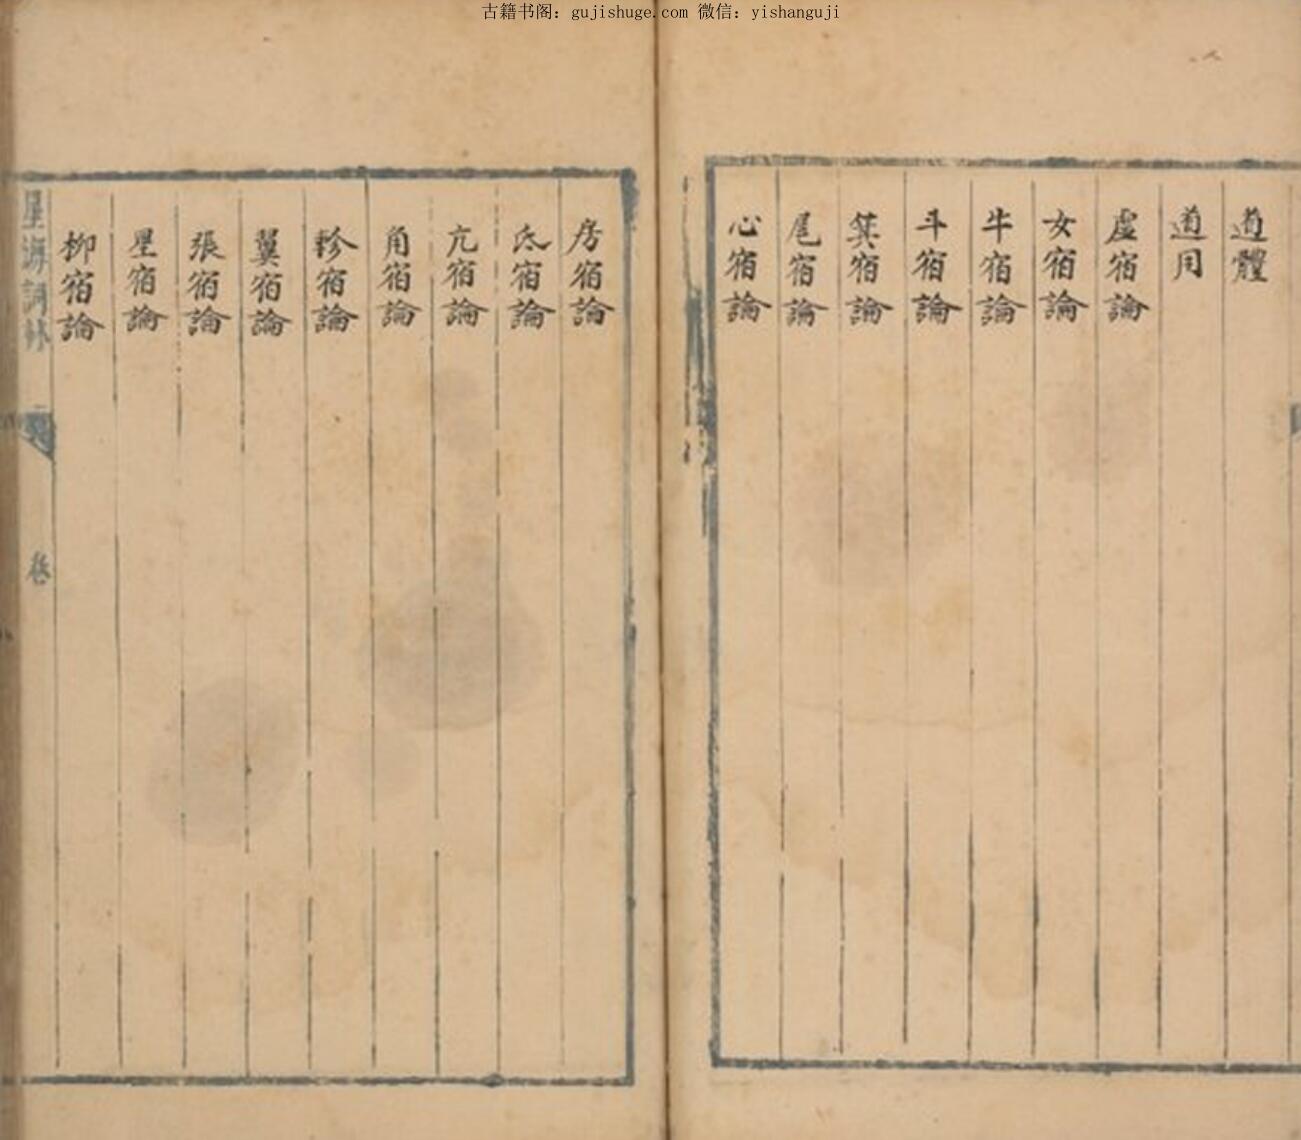 古籍书阁：gujishuge.com 微信：yishanguji
道體
道用
虛宿論
女宿論
牛宿論
斗宿論
箕宿論
尾宿論
心宿論
房宿論
氐宿論
亢宿論
角宿論
軫宿論
翼宿論
張宿論
星宿論
柳宿論
星海詞林
卷